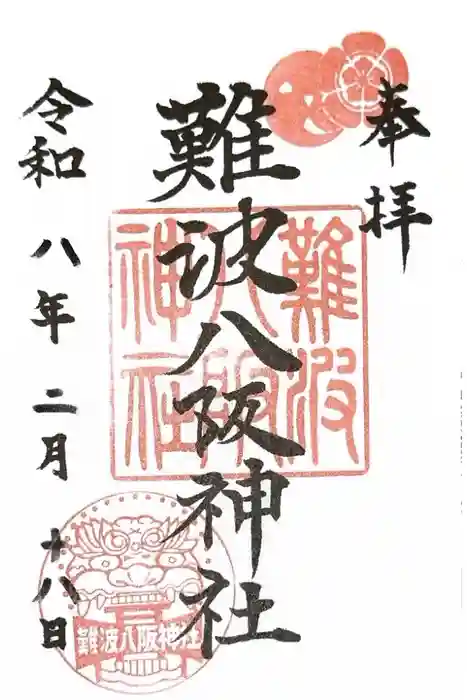 奉拝
難波八阪神社
令和八年二月十八日
難波
八阪
神社
難波八阪神社